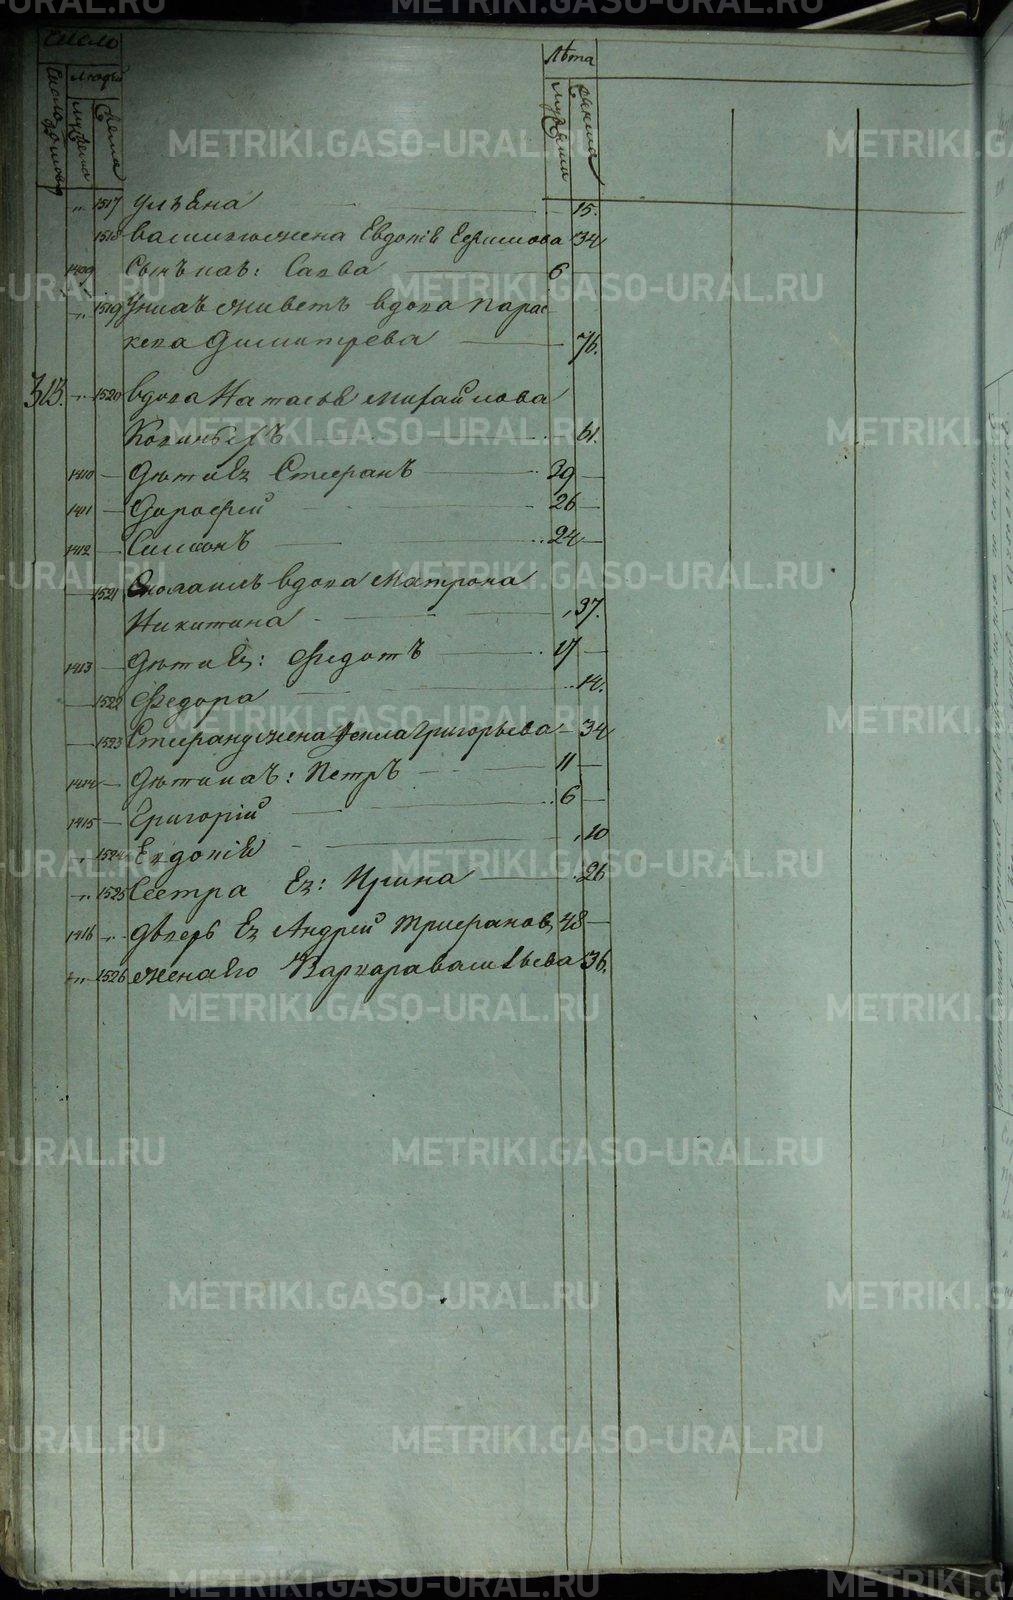 METRIKI.GASO-URAL.RU
Число
Людей
Число домов
Лѣта
мужеска
женска
1517 Ульяна 15.
1518 Васильяжена Евдокія Ефимова 34
1409 Сынъ иаъ: Савва 6
1519 Униаъ живетъ вдова Парас-
кева Димитрева 76.
313. 1520 вдова Наталья Михайлова
61.
1410 Дѣти Ея Стефанъ 39
1411 Дорофей 26
1412 Симонъ 24
1521 вдова Матрона
Никитина 37.
1413 Дѣти Ея: Федотъ 17
1522 Федора 14.
1523 Стефану жена Фекла Григорьева 34
1414 Дѣти иаъ: Петръ 11
1415 Григорій 6
1524 Евдокія 10
1525 Сестра Ея: Ирина 26
1416 Дверь Ея Андрей Трифановъ 48
1526 жена Его Варвара Васильева 36.